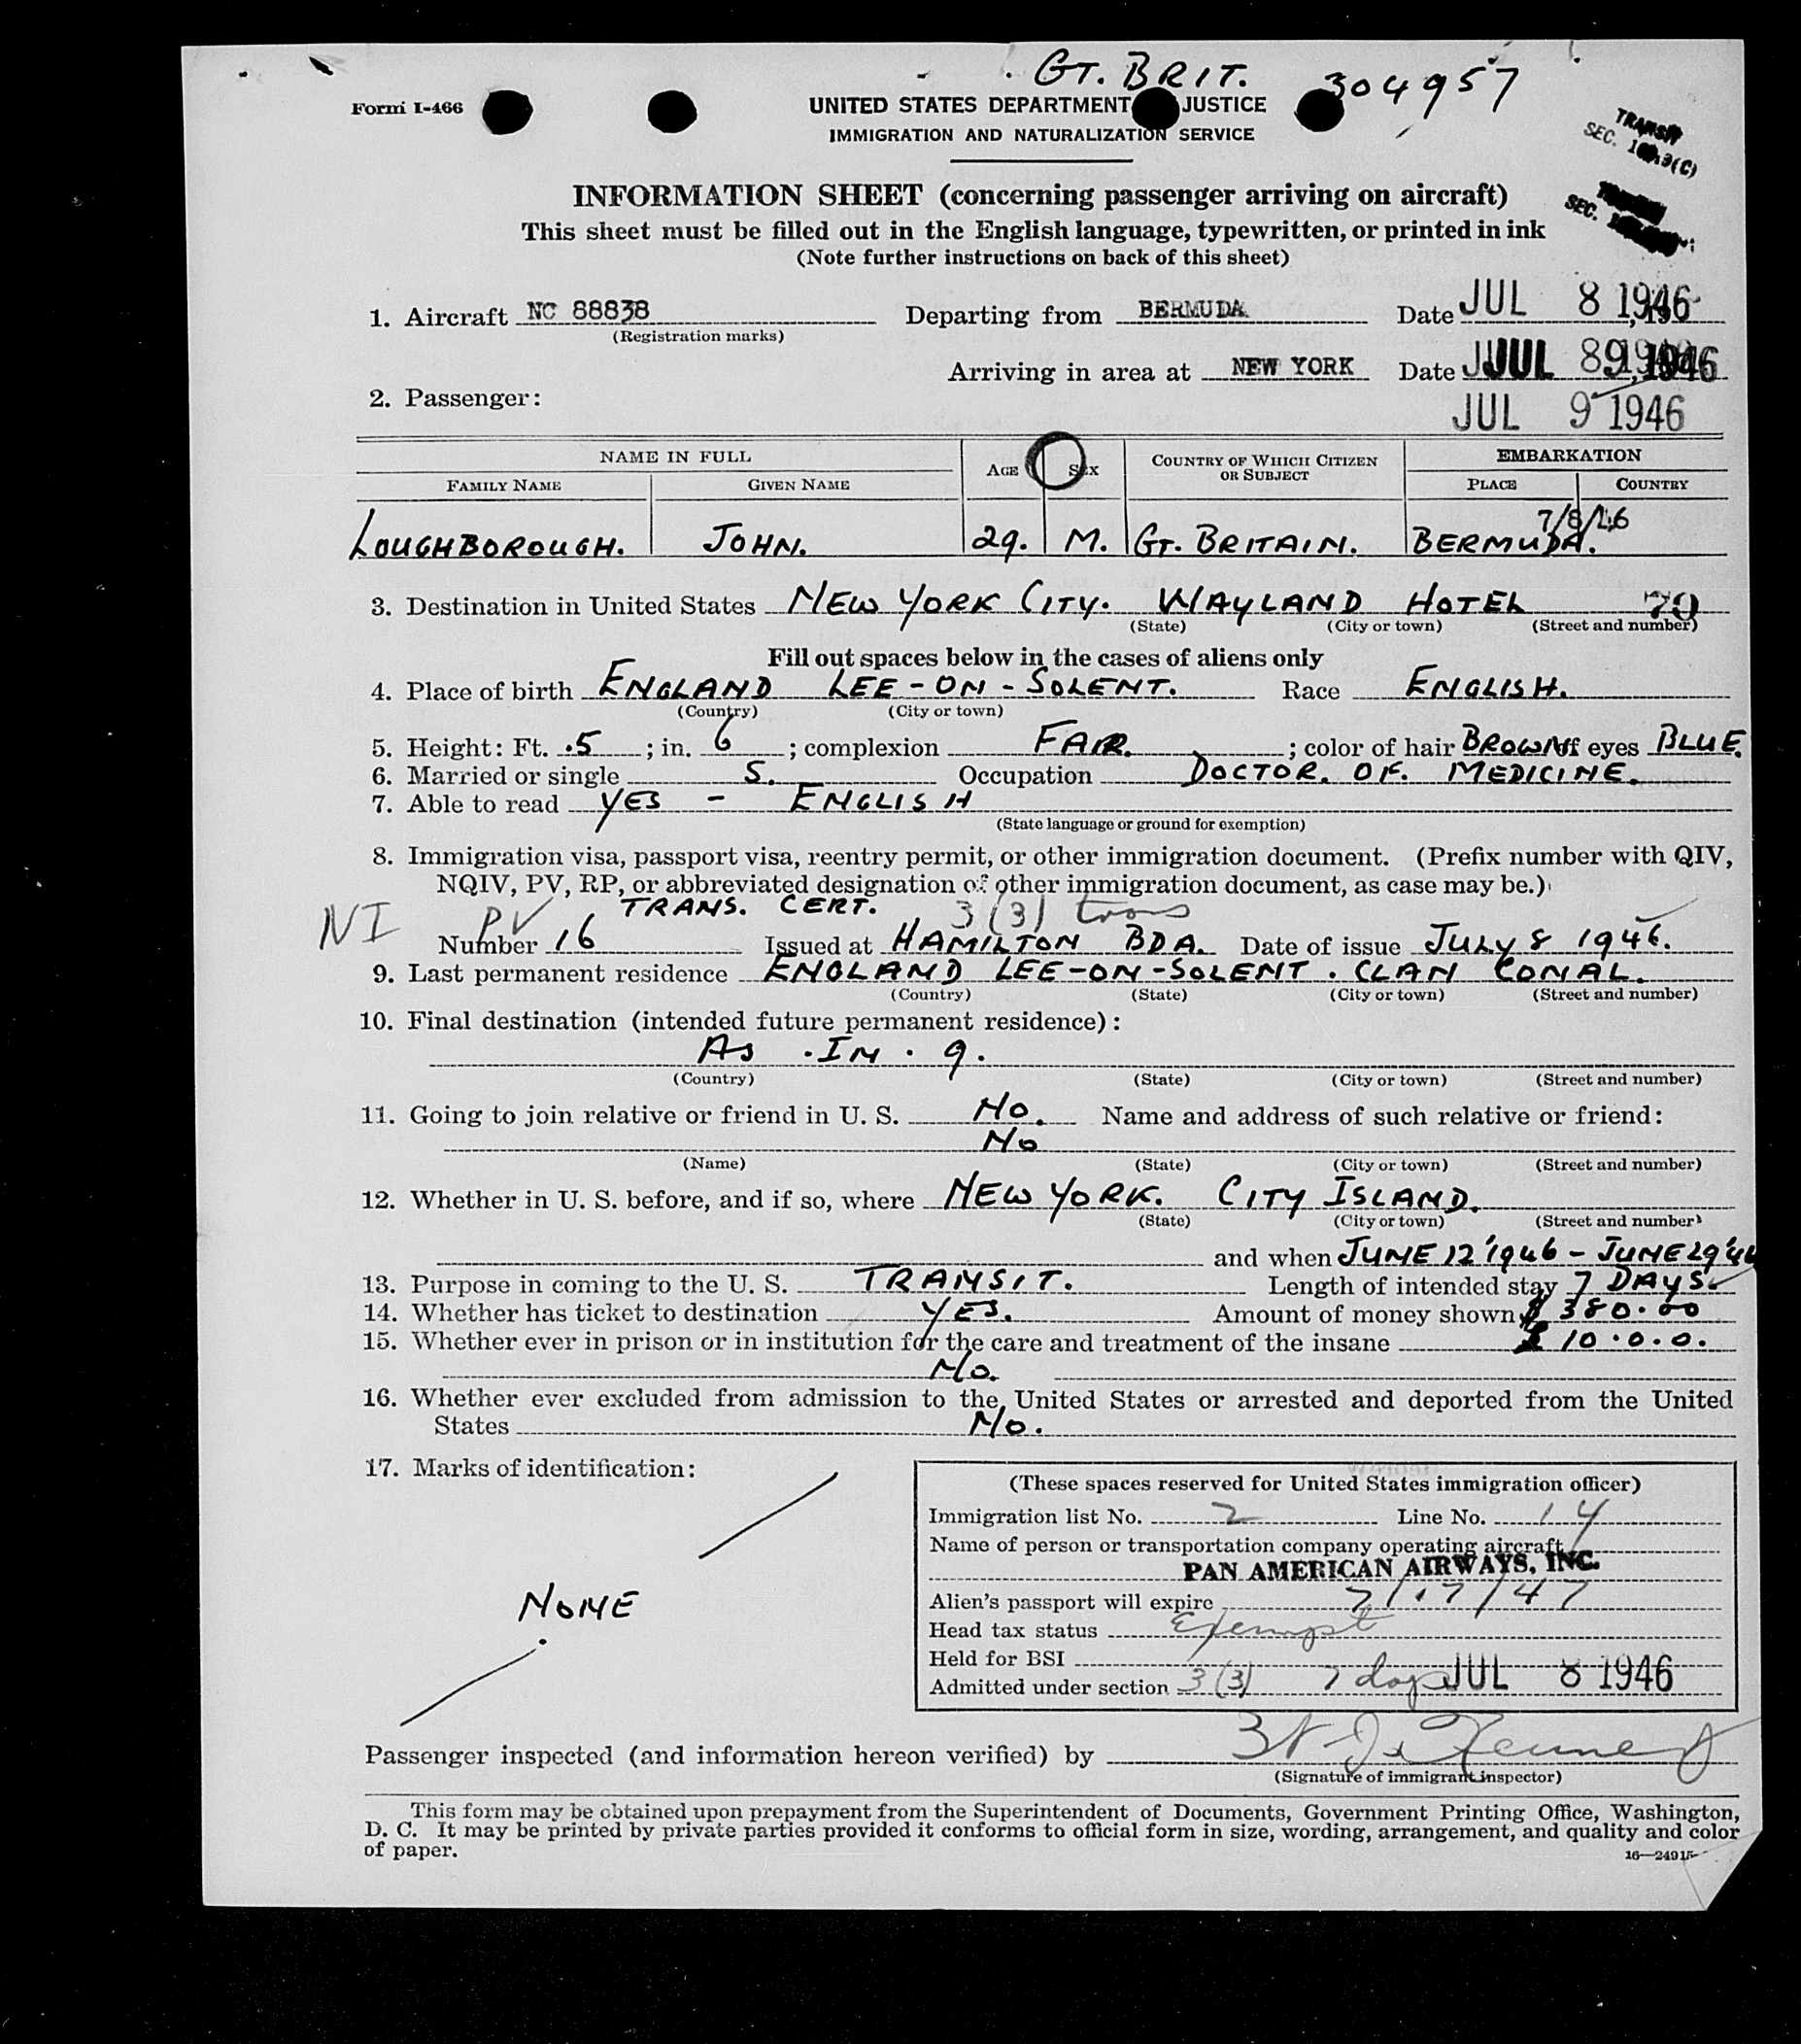 GT. BRIT. 304957
Form I-466
UNITED STATES DEPARTMENT JUSTICE
IMMIGRATION AND NATURALIZATION SERVICE
TRANSIT
SEC.
SEC.
INFORMATION SHEET (concerning passenger arriving on aircraft)
This sheet must be filled out in the English language, typewritten, or printed in ink
(Note further instructions on back of this sheet)
1. Aircraft NC 88838 Departing from BERMUDA Date JUL 8 1946
(Registration marks)
Arriving in area at NEW YORK Date JUL 1946
2. Passenger: JUL 9 1946
NAME IN FULL AGE SEX COUNTRY OF WHICH CITIZEN OR SUBJECT EMBARKATION
FAMILY NAME GIVEN NAME PLACE COUNTRY
7/8/46
LOUGHBOROUGH. JOHN. 29. M. GT. BRITAIN. BERMUDA.
3. Destination in United States NEW YORK CITY. WAYLAND HOTEL 79
(State) (City or town) (Street and number)
Fill out spaces below in the cases of aliens only
4. Place of birth ENGLAND LEE-ON-SOLENT. Race ENGLISH.
(Country) (City or town)
5. Height: Ft. .5 ; in. 6 ; complexion FAIR. ; color of hair BROWN of eyes BLUE.
6. Married or single S. Occupation DOCTOR. OF. MEDICINE.
7. Able to read YES - ENGLISH
(State language or ground for exemption)
8. Immigration visa, passport visa, reentry permit, or other immigration document. (Prefix number with QIV,
NQIV, PV, RP, or abbreviated designation of other immigration document, as case may be.)
NI PV TRANS. CERT. 3(3) trans
Number 16 Issued at HAMILTON BDA. Date of issue JULY 8 1946.
9. Last permanent residence ENGLAND LEE-ON-SOLENT. CLAN CONAL.
(Country) (State) (City or town) (Street and number)
10. Final destination (intended future permanent residence):
AS . IN . 9.
(Country) (State) (City or town) (Street and number)
11. Going to join relative or friend in U. S. NO. Name and address of such relative or friend:
NO
(Name) (State) (City or town) (Street and number)
12. Whether in U. S. before, and if so, where NEW YORK. CITY ISLAND.
(State) (City or town) (Street and number)
and when JUNE 12 '1946 - JUNE 29 '46
13. Purpose in coming to the U. S. TRANSIT. Length of intended stay 7 DAYS.
14. Whether has ticket to destination YES. Amount of money shown $ 380.00
15. Whether ever in prison or in institution for the care and treatment of the insane £ 10.0.0.
NO.
16. Whether ever excluded from admission to the United States or arrested and deported from the United
States NO.
17. Marks of identification:
NONE
(These spaces reserved for United States immigration officer)
Immigration list No. 2 Line No. 14
Name of person or transportation company operating aircraft
PAN AMERICAN AIRWAYS, INC.
Alien's passport will expire 7/17/47
Head tax status Exempt
Held for BSI
Admitted under section 3(3) 7 days JUL 8 1946
Passenger inspected (and information hereon verified) by
(Signature of immigrant inspector)
This form may be obtained upon prepayment from the Superintendent of Documents, Government Printing Office, Washington,
D. C. It may be printed by private parties provided it conforms to official form in size, wording, arrangement, and quality and color
of paper.
16—24915